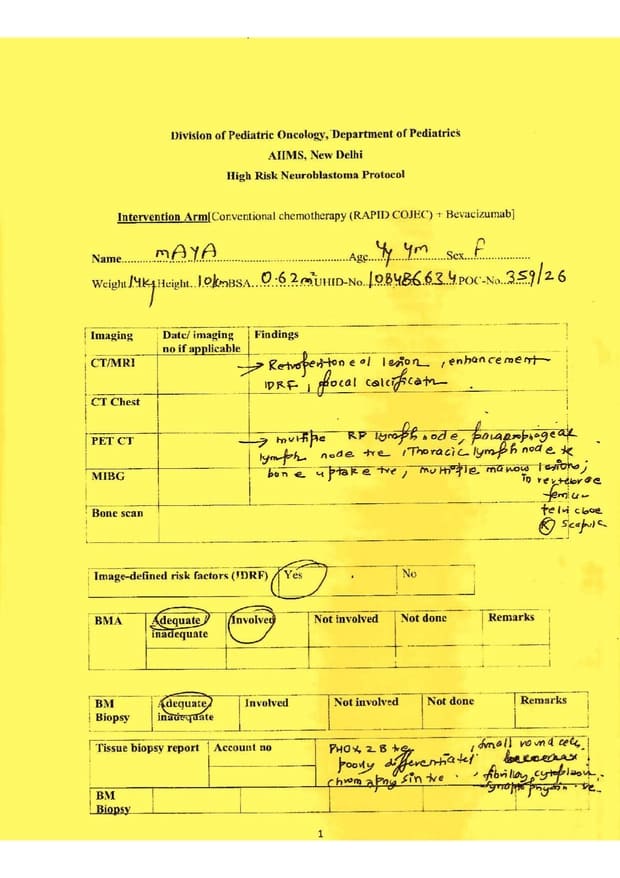 Division of Pediatric Oncology, Department of Pediatrics
AIIMS, New Delhi
High Risk Neuroblastoma Protocol
Intervention Arm[Conventional chemotherapy (RAPID COJEC) + Bevacizumab]
Name MAYA Age 4y 4m Sex F
Weight 14kg Height BSA 0.62m² UHID-No. 108486634 POC-No. 359/26
Imaging Date/ imaging Findings
no if applicable
CT/MRI → Retroperitoneal lesion, enhancement
IDRF, focal calcificatn
CT Chest
PET CT → multiple RP lymph node,
lymph node +ve, Thoracic lymph node +ve
MIBG bone uptake +ve, multiple marrow lesions,
in vertebrae
femur
Bone scan
(R) Scapula
Image-defined risk factors (IDRF) Yes No
BMA Adequate/ Involved Not involved Not done Remarks
inadequate
BM Adequate/ Involved Not involved Not done Remarks
Biopsy inadequate
Tissue biopsy report Account no PHOX2B +ve, small round cells
poorly differentiated
fibrillary cytoplasm
BM
Biopsy
1